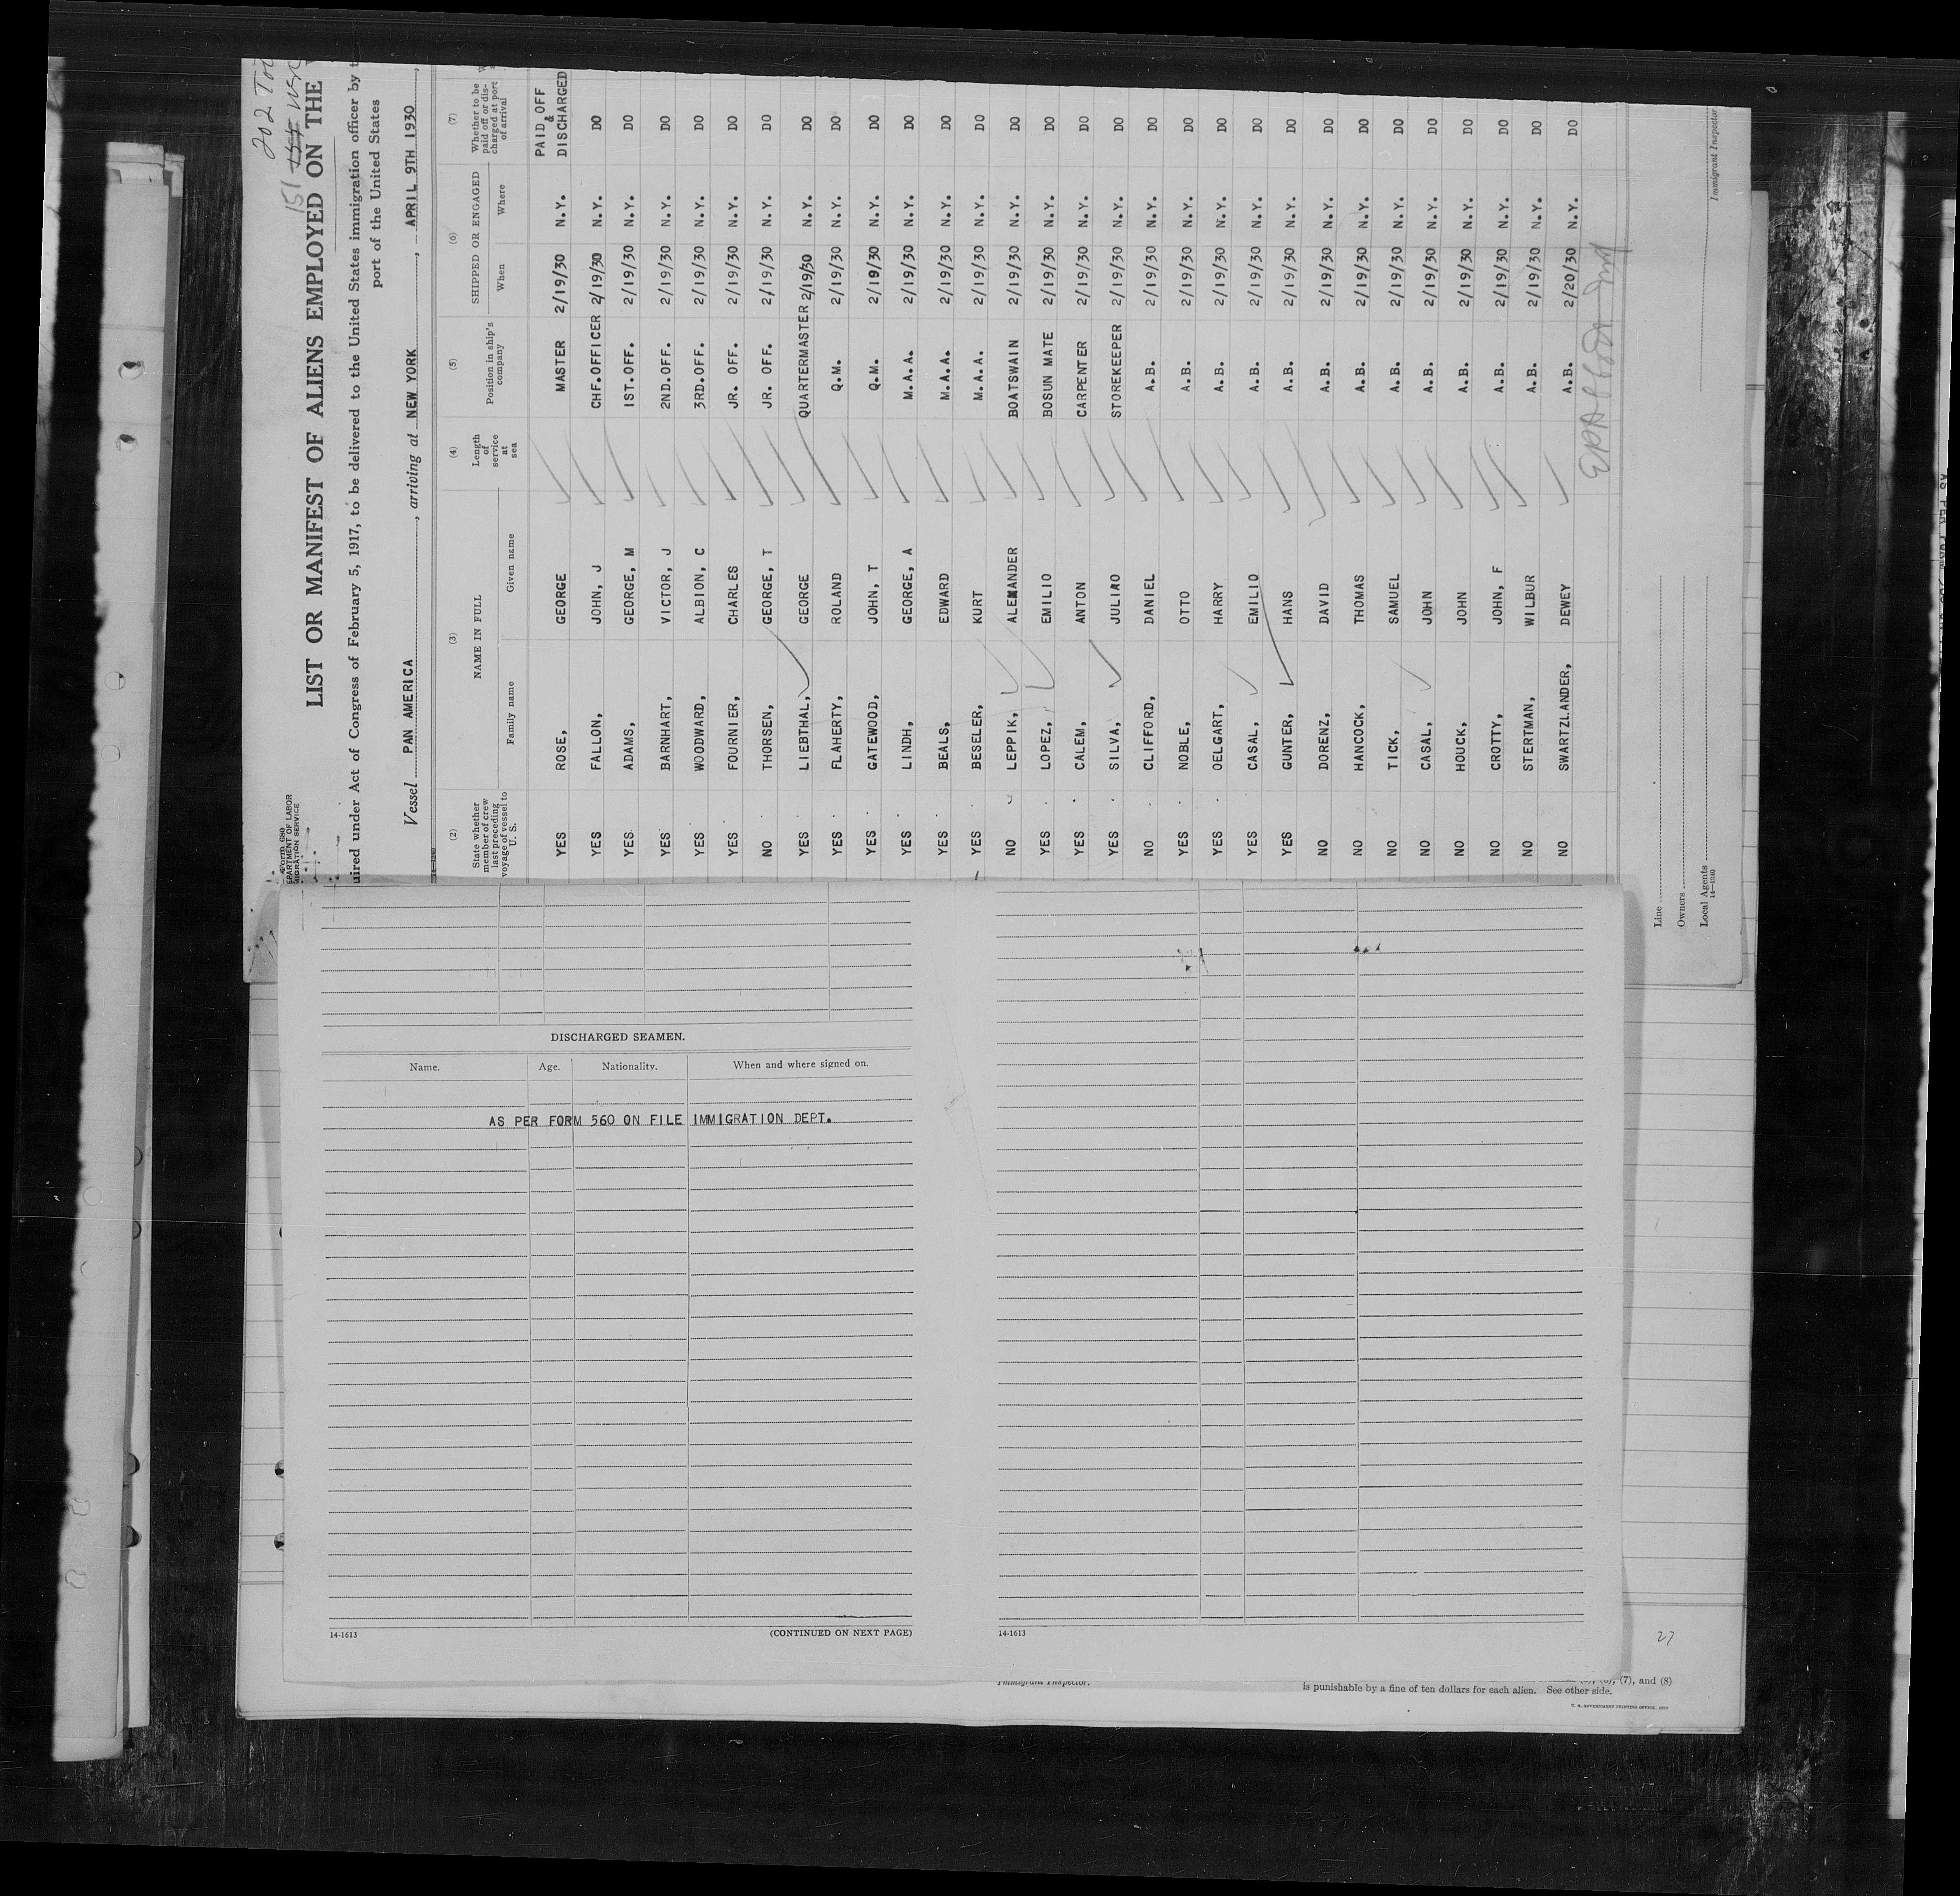 202 Tot
151
Form 680
LIST OR MANIFEST OF ALIENS EMPLOYED ON THE
uired under Act of Congress of February 5, 1917, to be delivered to the United States immigration officer by
port of the United States
Vessel PAN AMERICA, arriving at NEW YORK, APRIL 9TH 1930,
(2) (3) (4) (5) (6) (7)
State whether member of crew last preceding voyage of vessel to U. S. NAME IN FULL Family name Given name Length of service at sea Position in ship's company SHIPPED OR ENGAGED When Where Whether to be paid off or discharged at port of arrival
YES ROSE, GEORGE MASTER 2/19/30 N.Y. PAID OFF & DISCHARGED
YES FALLON, JOHN, J CHF.OFFICER 2/19/30 N.Y. DO
YES ADAMS, GEORGE, M 1ST.OFF. 2/19/30 N.Y. DO
YES BARNHART, VICTOR, J 2ND.OFF. 2/19/30 N.Y. DO
YES WOODWARD, ALBION, C 3RD.OFF. 2/19/30 N.Y. DO
YES FOURNIER, CHARLES JR. OFF. 2/19/30 N.Y. DO
NO THORSEN, GEORGE, T JR. OFF. 2/19/30 N.Y. DO
YES LIEBTHAL, GEORGE QUARTERMASTER 2/19/30 N.Y. DO
YES FLAHERTY, ROLAND Q.M. 2/19/30 N.Y. DO
YES GATEWOOD, JOHN, T Q.M. 2/19/30 N.Y. DO
YES LINDH, GEORGE, A M.A.A. 2/19/30 N.Y. DO
YES BEALS, EDWARD M.A.A. 2/19/30 N.Y. DO
YES BESELER, KURT M.A.A. 2/19/30 N.Y. DO
NO LEPPIK, ALEXANDER BOATSWAIN 2/19/30 N.Y. DO
YES LOPEZ, EMILIO BOSUN MATE 2/19/30 N.Y. DO
YES CALEM, ANTON CARPENTER 2/19/30 N.Y. DO
YES SILVA, JULIAO STOREKEEPER 2/19/30 N.Y. DO
NO CLIFFORD, DANIEL A.B. 2/19/30 N.Y. DO
YES NOBLE, OTTO A.B. 2/19/30 N.Y. DO
YES OELGART, HARRY A.B. 2/19/30 N.Y. DO
YES CASAL, EMILIO A.B. 2/19/30 N.Y. DO
YES GUNTER, HANS A.B. 2/19/30 N.Y. DO
NO DORENZ, DAVID A.B. 2/19/30 N.Y. DO
NO HANCOCK, THOMAS A.B. 2/19/30 N.Y. DO
NO TICK, SAMUEL A.B. 2/19/30 N.Y. DO
NO CASAL, JOHN A.B. 2/19/30 N.Y. DO
NO HOUCK, JOHN A.B. 2/19/30 N.Y. DO
NO CROTTY, JOHN, F A.B. 2/19/30 N.Y. DO
NO STERTMAN, WILBUR A.B. 2/19/30 N.Y. DO
NO SWARTZLANDER, DEWEY A.B. 2/20/30 N.Y. DO
Line
Owners
Local Agents
14—1240
Immigrant Inspector
DISCHARGED SEAMEN.
Name. Age. Nationality. When and where signed on.
AS PER FORM 560 ON FILE IMMIGRATION DEPT.
14-1613 (CONTINUED ON NEXT PAGE) 14-1613
27
Immigrant Inspector.
(7), and (8)
is punishable by a fine of ten dollars for each alien. See other side.